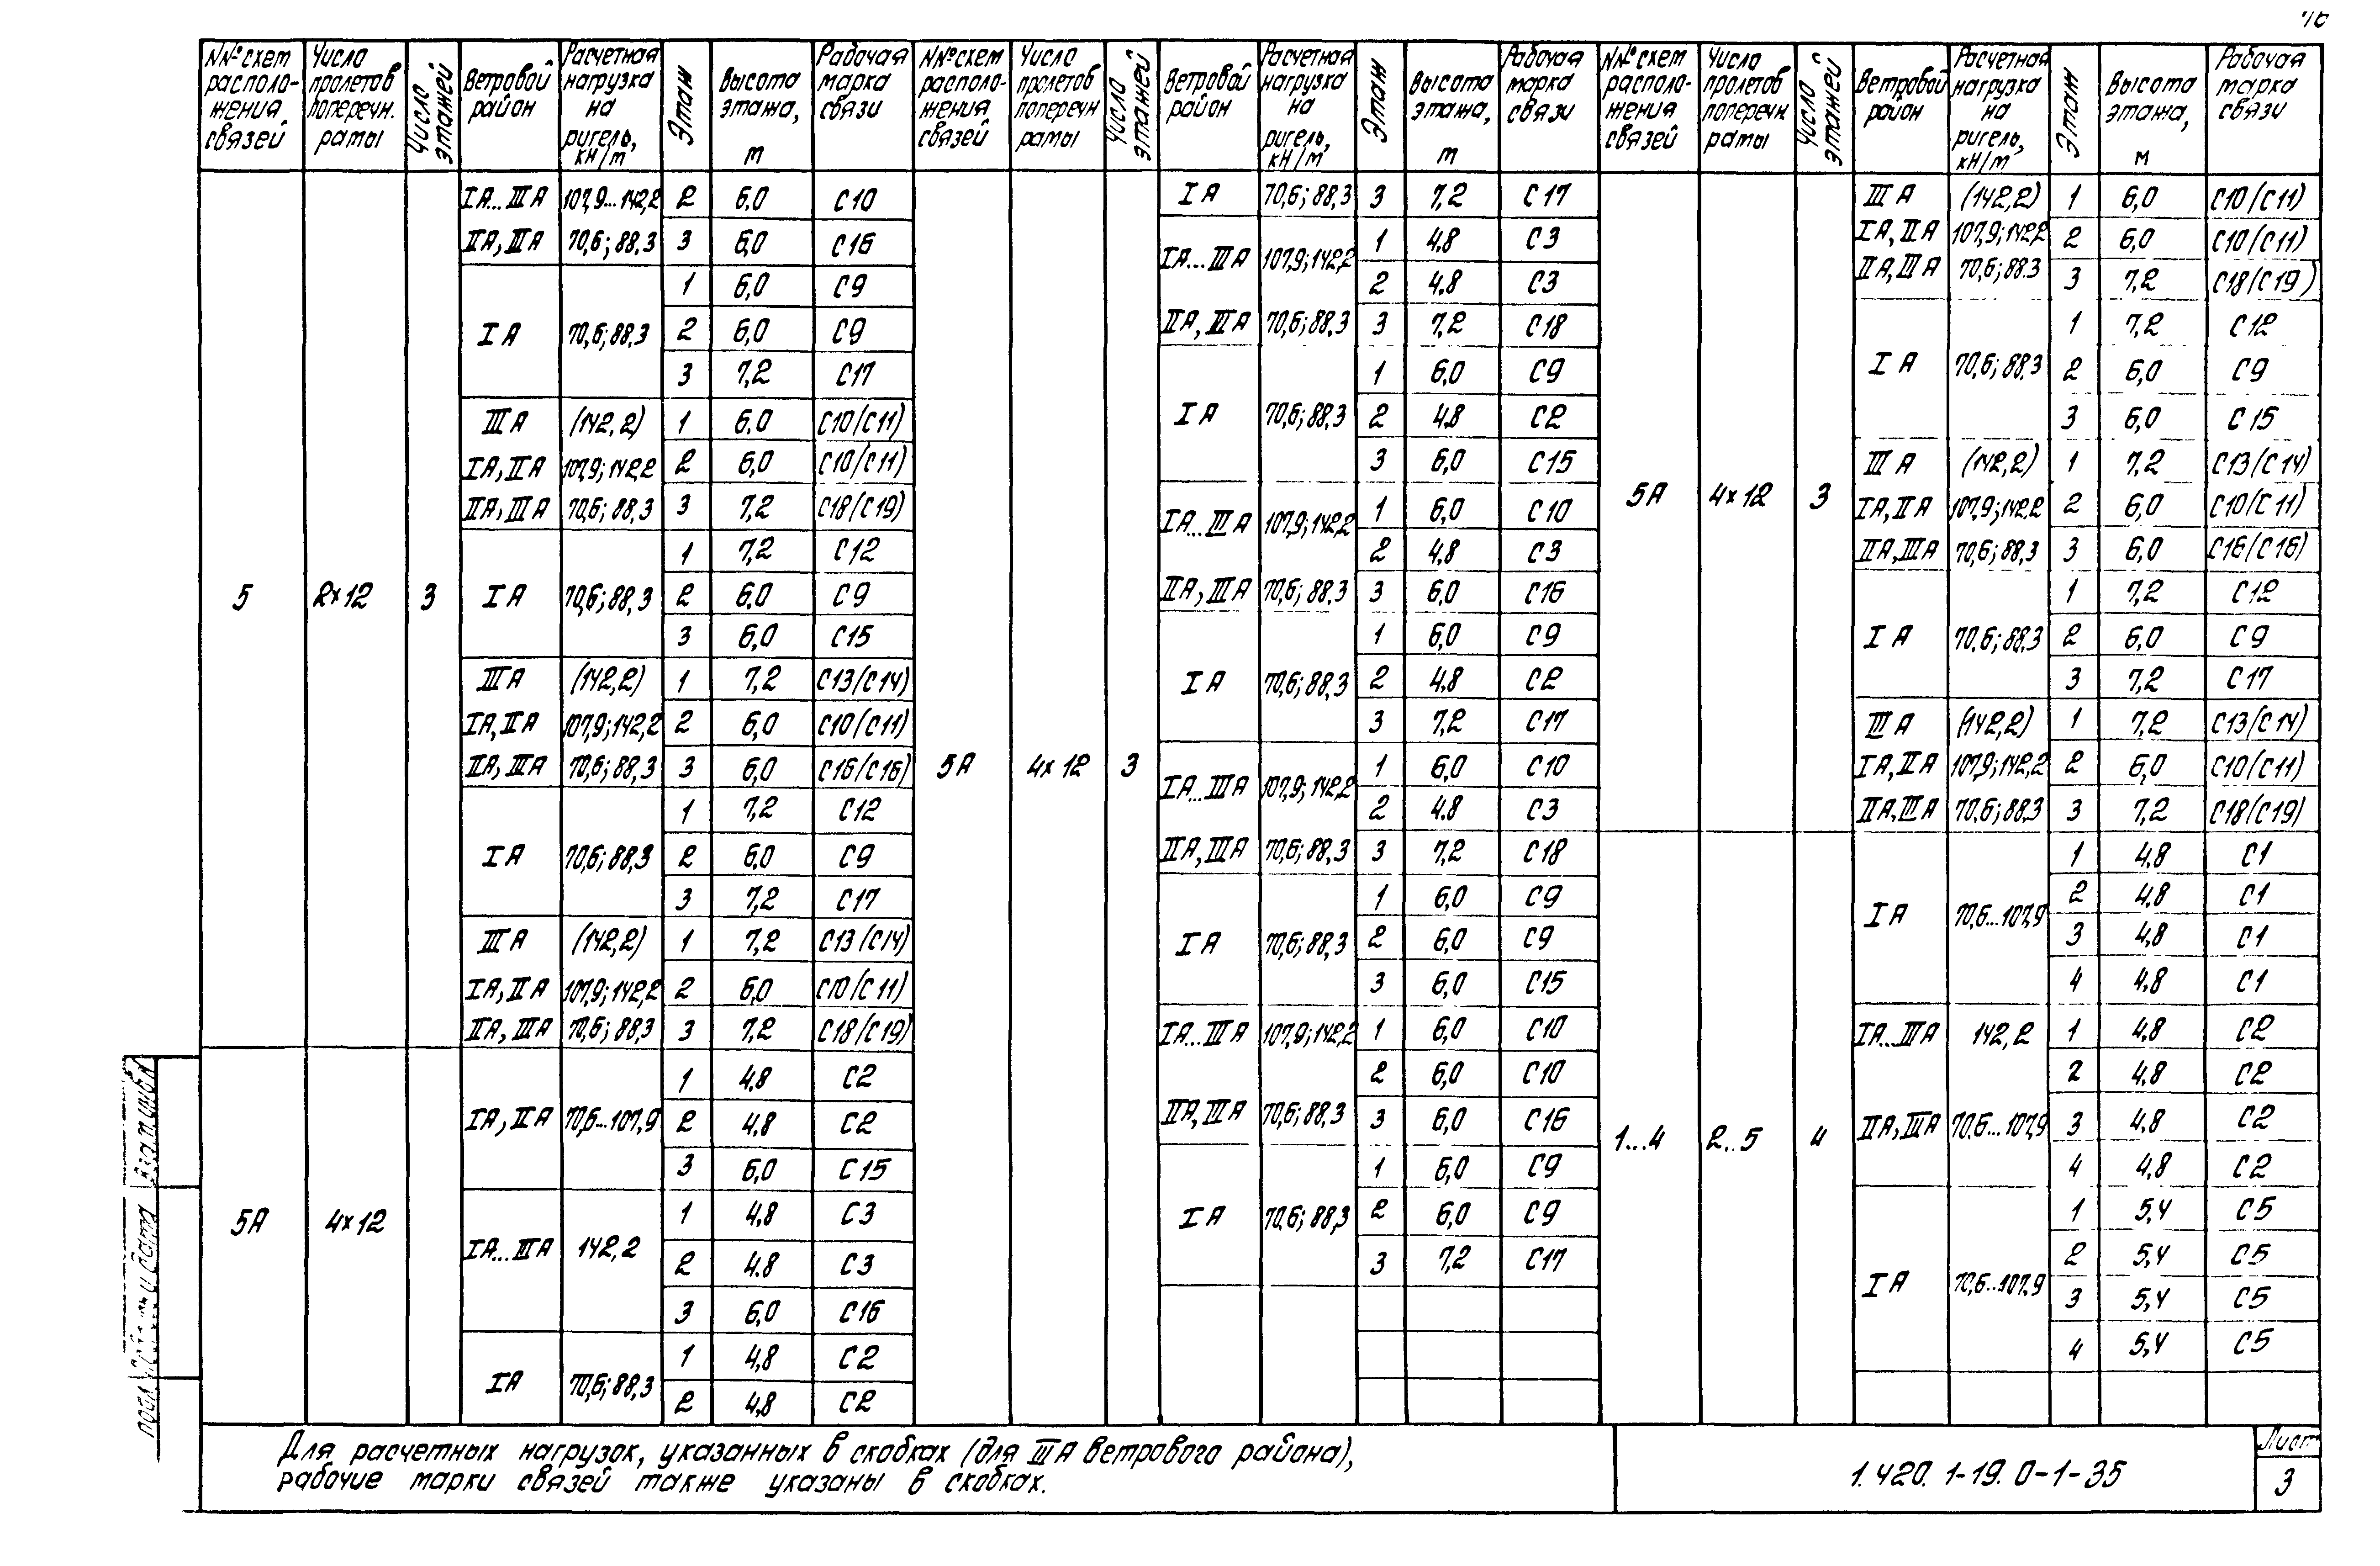 NN° схем расположения связей | Число пролетов поперечн. рамы | Число этажей | Ветровой район | Расчетная нагрузка на ригель, кН/м | Этаж | Высота этажа, м | Рабочая марка связи
5 | 2×12 | 3
IА...IIIА | 107,9...142,2 | 2 | 6,0 | С10
IIА, IIIА | 70,6; 88,3 | 3 | 6,0 | С16
IА | 70,6; 88,3 | 1 | 6,0 | С9
2 | 6,0 | С9
3 | 7,2 | С17
IIIА | (142,2) | 1 | 6,0 | С10/(С11)
IА, IIА | 107,9; 142,2 | 2 | 6,0 | С10/(С11)
IIА, IIIА | 70,6; 88,3 | 3 | 7,2 | С18/(С19)
IА | 70,6; 88,3 | 1 | 7,2 | С12
2 | 6,0 | С9
3 | 6,0 | С15
IIIА | (142,2) | 1 | 7,2 | С13/(С14)
IА, IIА | 107,9; 142,2 | 2 | 6,0 | С10/(С11)
IIА, IIIА | 70,6; 88,3 | 3 | 6,0 | С16/(С16)
IА | 70,6; 88,3 | 1 | 7,2 | С12
2 | 6,0 | С9
3 | 7,2 | С17
IIIА | (142,2) | 1 | 7,2 | С13/(С14)
IА, IIА | 107,9; 142,2 | 2 | 6,0 | С10/(С11)
IIА, IIIА | 70,6; 88,3 | 3 | 7,2 | С18/(С19)
5А | 4×12
IА, IIА | 70,6...107,9 | 1 | 4,8 | С2
2 | 4,8 | С2
3 | 6,0 | С15
IА...IIIА | 142,2 | 1 | 4,8 | С3
2 | 4,8 | С3
3 | 6,0 | С16
IА | 70,6; 88,3 | 1 | 4,8 | С2
2 | 4,8 | С2
NN° схем расположения связей | Число пролетов поперечн рамы | Число этажей | Ветровой район | Расчетная нагрузка на ригель, кН/м | Этаж | Высота этажа, м | Рабочая марка связи
5А | 4×12 | 3
IА | 70,6; 88,3 | 3 | 7,2 | С17
IА...IIIА | 107,9; 142,2 | 1 | 4,8 | С3
2 | 4,8 | С3
IIА, IIIА | 70,6; 88,3 | 3 | 7,2 | С18
IА | 70,6; 88,3 | 1 | 6,0 | С9
2 | 4,8 | С2
3 | 6,0 | С15
IА...IIIА | 107,9; 142,2 | 1 | 6,0 | С10
2 | 4,8 | С3
IIА, IIIА | 70,6; 88,3 | 3 | 6,0 | С16
IА | 70,6; 88,3 | 1 | 6,0 | С9
2 | 4,8 | С2
3 | 7,2 | С17
IА...IIIА | 107,9; 142,2 | 1 | 6,0 | С10
2 | 4,8 | С3
IIА, IIIА | 70,6; 88,3 | 3 | 7,2 | С18
IА | 70,6; 88,3 | 1 | 6,0 | С9
2 | 6,0 | С9
3 | 6,0 | С15
IА...IIIА | 107,9; 142,2 | 1 | 6,0 | С10
2 | 6,0 | С10
IIА, IIIА | 70,6; 88,3 | 3 | 6,0 | С16
IА | 70,6; 88,3 | 1 | 6,0 | С9
2 | 6,0 | С9
3 | 7,2 | С17
NN° схем расположения связей | Число пролетов поперечн. рамы | Число этажей | Ветровой район | Расчетная нагрузка на ригель, кН/м | Этаж | Высота этажа, м | Рабочая марка связи
5А | 4×12 | 3
IIIА | (142,2) | 1 | 6,0 | С10/(С11)
IА, IIА | 107,9; 142,2 | 2 | 6,0 | С10/(С11)
IIА, IIIА | 70,6; 88,3 | 3 | 7,2 | С18/(С19)
IА | 70,6; 88,3 | 1 | 7,2 | С12
2 | 6,0 | С9
3 | 6,0 | С15
IIIА | (142,2) | 1 | 7,2 | С13/(С14)
IА, IIА | 107,9; 142,2 | 2 | 6,0 | С10/(С11)
IIА, IIIА | 70,6; 88,3 | 3 | 6,0 | С16/(С16)
IА | 70,6; 88,3 | 1 | 7,2 | С12
2 | 6,0 | С9
3 | 7,2 | С17
IIIА | (142,2) | 1 | 7,2 | С13/(С14)
IА, IIА | 107,9; 142,2 | 2 | 6,0 | С10/(С11)
IIА, IIIА | 70,6; 88,3 | 3 | 7,2 | С18/(С19)
1...4 | 2..5 | 4
IА | 70,6...107,9 | 1 | 4,8 | С1
2 | 4,8 | С1
3 | 4,8 | С1
4 | 4,8 | С1
IА...IIIА | 142,2 | 1 | 4,8 | С2
2 | 4,8 | С2
IIА, IIIА | 70,6...107,9 | 3 | 4,8 | С2
4 | 4,8 | С2
IА | 70,6...107,9 | 1 | 5,4 | С5
2 | 5,4 | С5
3 | 5,4 | С5
4 | 5,4 | С5
Для расчетных нагрузок, указанных в скобках (для IIIА ветрового района),
рабочие марки связей также указаны в скобках.
1.420.1-19.0-1-35
Лист
3
подл.
и дата